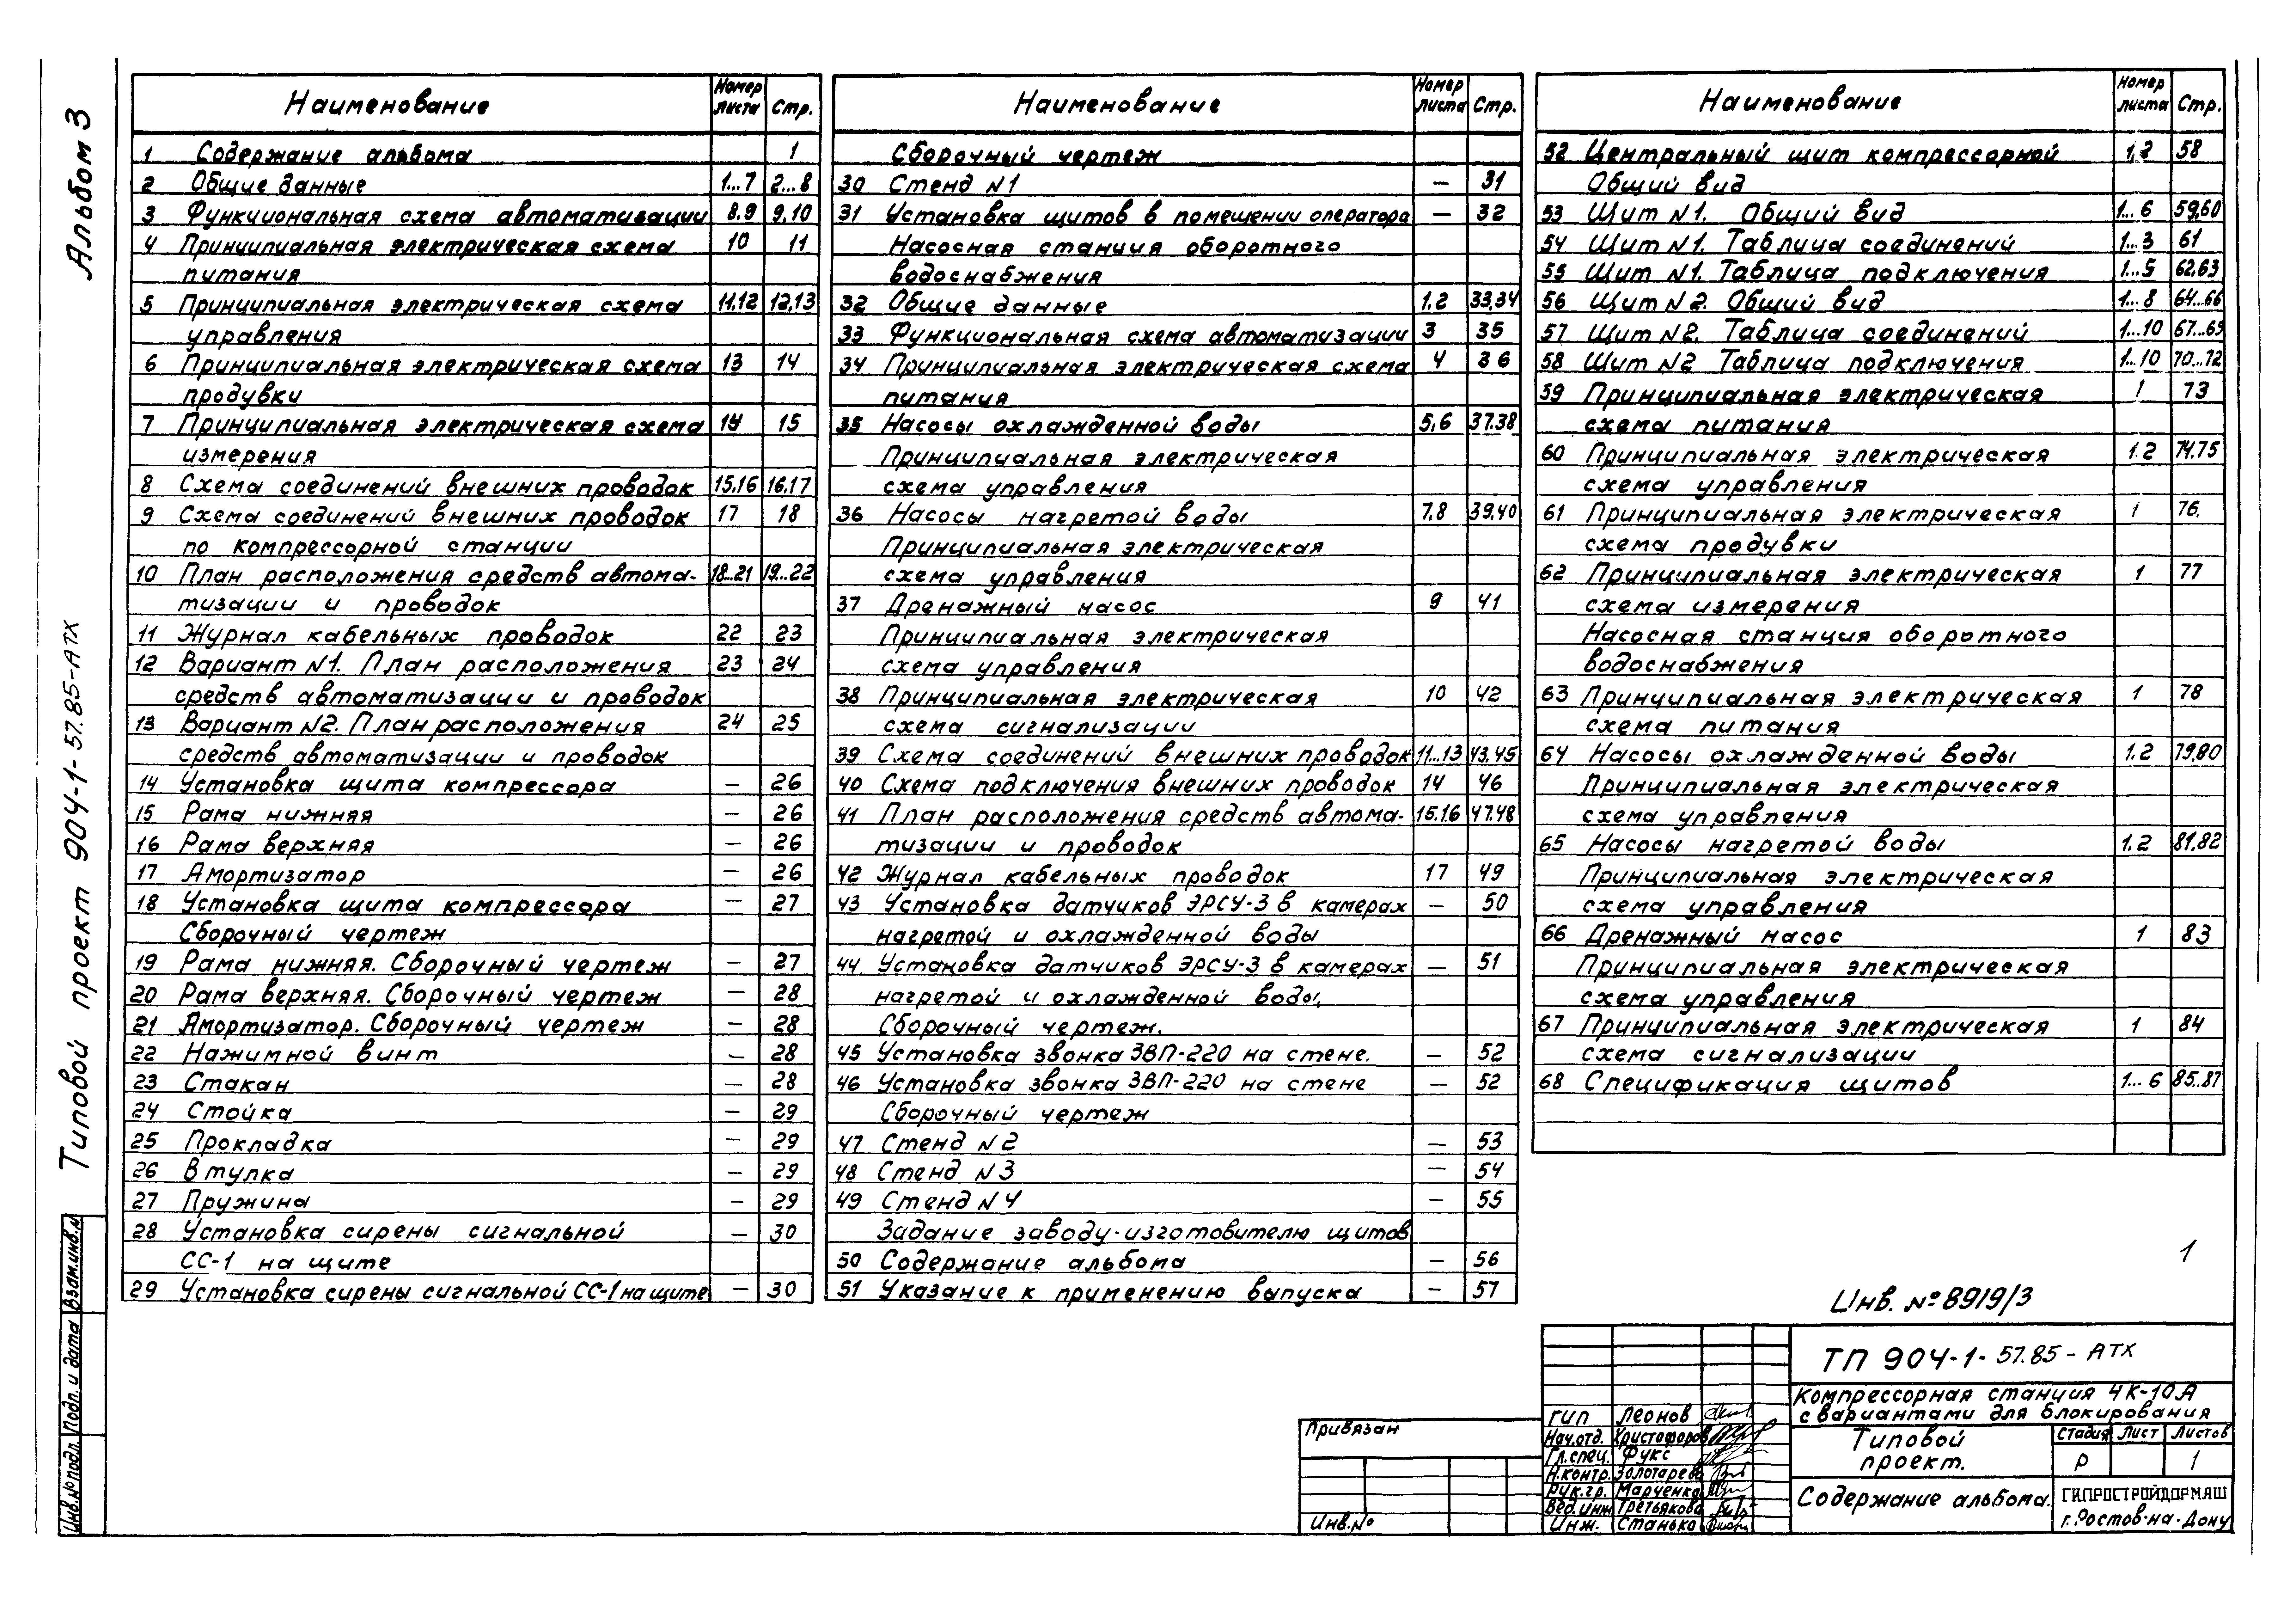 Альбом 3
Типовой проект 904-1-57.85-АТХ
Взам.инв.№
Подп. и дата
Инв.№ подл.
Наименование Номер листа Стр.
1 Содержание альбома 1
2 Общие данные 1...7 2...8
3 Функциональная схема автоматизации 8,9 9,10
4 Принципиальная электрическая схема 10 11
питания
5 Принципиальная электрическая схема 11,12 12,13
управления
6 Принципиальная электрическая схема 13 14
продувки
7 Принципиальная электрическая схема 14 15
измерения
8 Схема соединений внешних проводок 15,16 16,17
9 Схема соединений внешних проводок 17 18
по компрессорной станции
10 План расположения средств автома- 18...21 19...22
тизации и проводок
11 Журнал кабельных проводок 22 23
12 Вариант N1. План расположения 23 24
средств автоматизации и проводок
13 Вариант N2. План расположения 24 25
средств автоматизации и проводок
14 Установка щита компрессора — 26
15 Рама нижняя — 26
16 Рама верхняя — 26
17 Амортизатор — 26
18 Установка щита компрессора — 27
Сборочный чертеж
19 Рама нижняя. Сборочный чертеж — 27
20 Рама верхняя. Сборочный чертеж — 28
21 Амортизатор. Сборочный чертеж — 28
22 Нажимной винт — 28
23 Стакан — 28
24 Стойка — 29
25 Прокладка — 29
26 Втулка — 29
27 Пружина — 29
28 Установка сирены сигнальной — 30
СС-1 на щите
29 Установка сирены сигнальной СС-1 на щите — 30
Наименование Номер листа Стр.
Сборочный чертеж
30 Стенд N1 — 31
31 Установка щитов в помещении оператора — 32
Насосная станция оборотного
водоснабжения
32 Общие данные 1,2 33,34
33 Функциональная схема автоматизации 3 35
34 Принципиальная электрическая схема 4 36
питания
35 Насосы охлажденной воды 5,6 37.38
Принципиальная электрическая
схема управления
36 Насосы нагретой воды 7,8 39,40
Принципиальная электрическая
схема управления
37 Дренажный насос 9 41
Принципиальная электрическая
схема управления
38 Принципиальная электрическая 10 42
схема сигнализации
39 Схема соединений внешних проводок 11...13 43,45
40 Схема подключения внешних проводок 14 46
41 План расположения средств автома- 15.16 47.48
тизации и проводок
42 Журнал кабельных проводок 17 49
43 Установка датчиков ЭРСУ-3 в камерах — 50
нагретой и охлажденной воды
44 Установка датчиков ЭРСУ-3 в камерах — 51
нагретой и охлажденной воды,
Сборочный чертеж.
45 Установка звонка ЗВП-220 на стене. — 52
46 Установка звонка ЗВП-220 на стене — 52
Сборочный чертеж
47 Стенд N2 — 53
48 Стенд N3 — 54
49 Стенд N4 — 55
Задание заводу-изготовителю щитов
50 Содержание альбома — 56
51 Указание к применению выпуска — 57
Наименование Номер листа Стр.
52 Центральный щит компрессорной 1,2 58
Общий вид
53 Щит N1. Общий вид 1...6 59,60
54 Щит N1. Таблица соединений 1...3 61
55 Щит N1. Таблица подключения 1...5 62,63
56 Щит N2. Общий вид 1...8 64...66
57 Щит N2. Таблица соединений 1...10 67...69
58 Щит N2 Таблица подключения 1...10 70...72
59 Принципиальная электрическая 1 73
схема питания
60 Принципиальная электрическая 1.2 74.75
схема управления
61 Принципиальная электрическая 1 76.
схема продувки
62 Принципиальная электрическая 1 77
схема измерения
Насосная станция оборотного
водоснабжения
63 Принципиальная электрическая 1 78
схема питания
64 Насосы охлажденной воды 1.2 79,80
Принципиальная электрическая
схема управления
65 Насосы нагретой воды 1.2 81.82
Принципиальная электрическая
схема управления
66 Дренажный насос 1 83
Принципиальная электрическая
схема управления
67 Принципиальная электрическая 1 84
схема сигнализации
68 Спецификация щитов 1...6 85..87
1
Инв. № 8919/3
ТП 904-1-57.85-АТХ
Компрессорная станция 4К-10А
с вариантами для блокирования
Типовой
проект.
Стадия Лист Листов
Р 1
Содержание альбома.
ГИПРОСТРОЙДОРМАШ
г.Ростов-на-Дону
ГИП Леонов
Нач.отд. Христофоров
Гл.спец. Фукс
Н.контр. Золотарева
Рук.гр. Марченко
Вед.инж Третьякова
Инж. Станько
Привязан
Инв.№